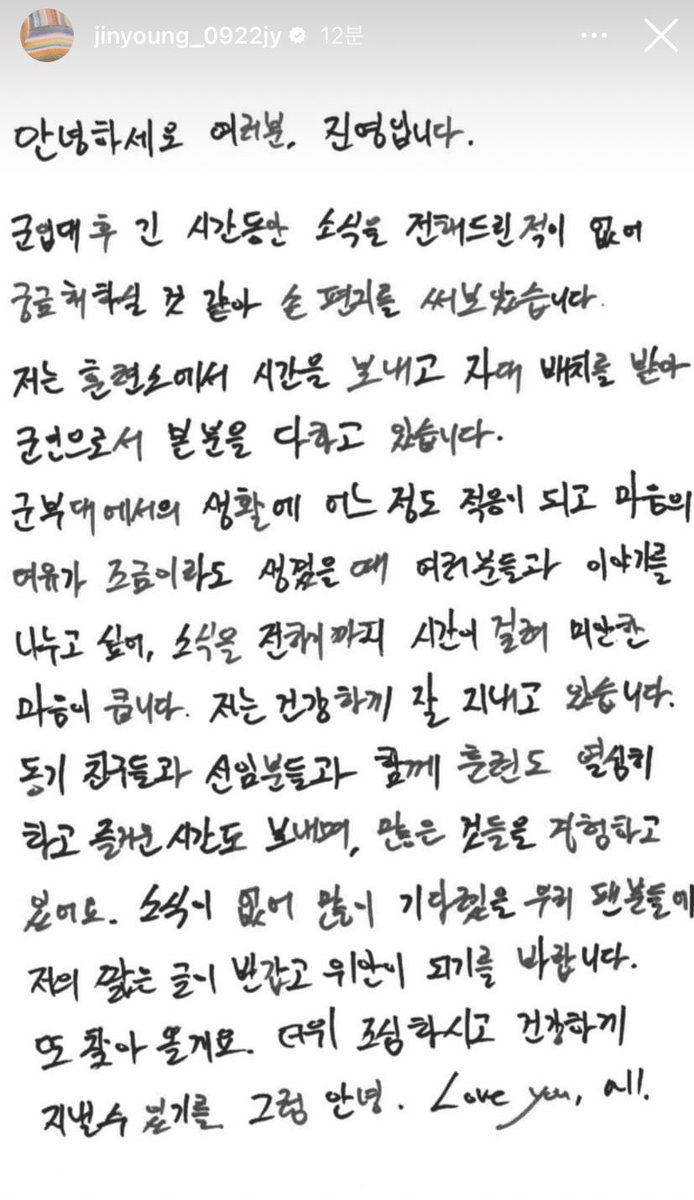 jinyoung_0922jy 12분
안녕하세요 여러분, 진영입니다.
군입대 후 긴 시간동안 소식을 전해드린적이 없어
궁금해하실 것 같아 손 편지를 써보았습니다.
저는 훈련소에서 시간을 보내고 자대 배치를 받아
군인으로서 본분을 다하고 있습니다.
군부대에서의 생활에 어느 정도 적응이 되고 마음의
여유가 조금이라도 생겼을 때 여러분들과 이야기를
나누고 싶어, 소식을 전하기까지 시간이 걸려 미안한
마음이 큽니다. 저는 건강하게 잘 지내고 있습니다.
동기 친구들과 선임분들과 함께 훈련도 열심히
하고 즐거운 시간도 보내며, 많은 것들을 경험하고
있어요. 소식이 없어 많이 기다렸을 우리 팬분들에
저의 짧은 글이 반갑고 위안이 되기를 바랍니다.
또 찾아 올게요. 더위 조심하시고 건강하게
지낼수 있기를 그럼 안녕. Love you, all.